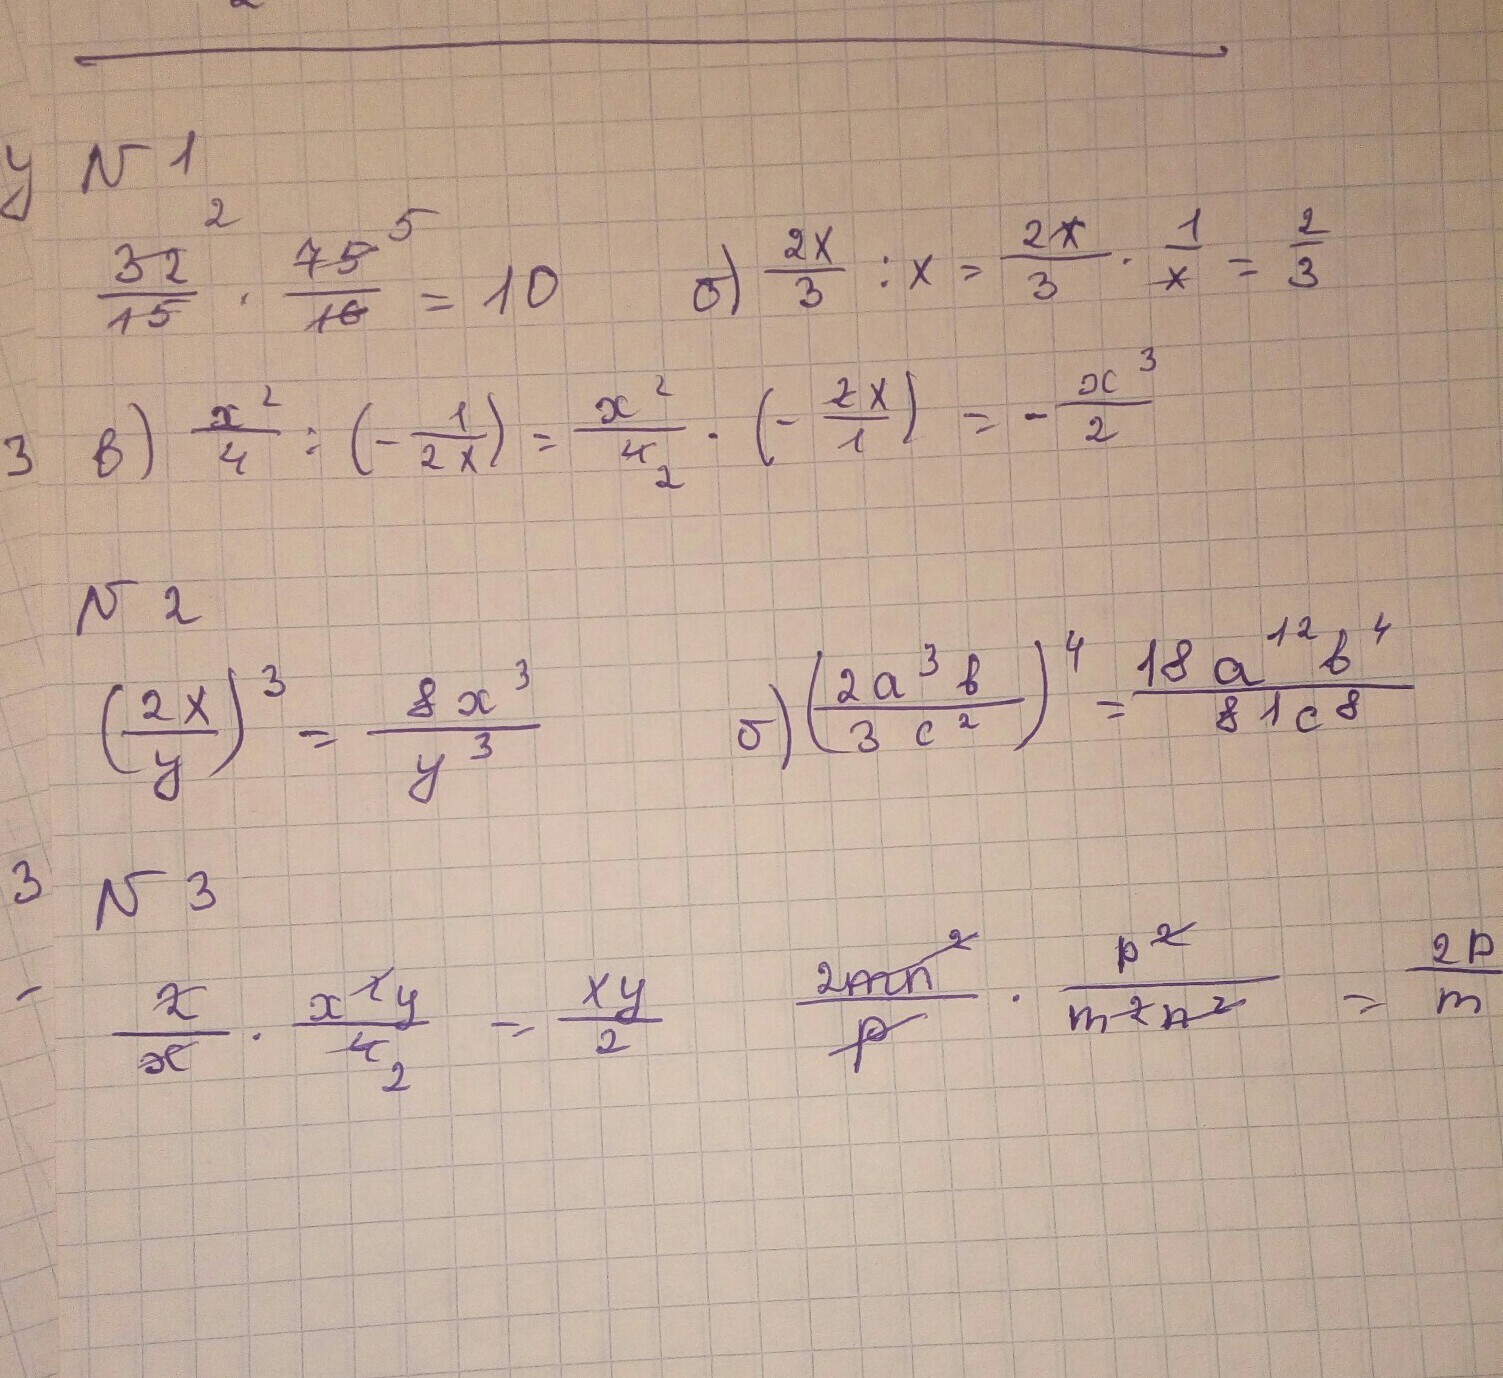 N 1
32/15 ² · 75/16 ⁵ = 10 б) 2x/3 : x = 2x/3 · 1/x = 2/3
в) x²/4 : (-1/2x) = x²/4 ₂ · (-2x/1) = -x³/2
N 2
(2x/y)³ = 8x³/y³ б) (2a³b/3c²)⁴ = 18a¹²b⁴/81c⁸
N 3
2/x · x²y/4 ₂ = xy/2 2mn²/p · p²/m²n² = 2p/m